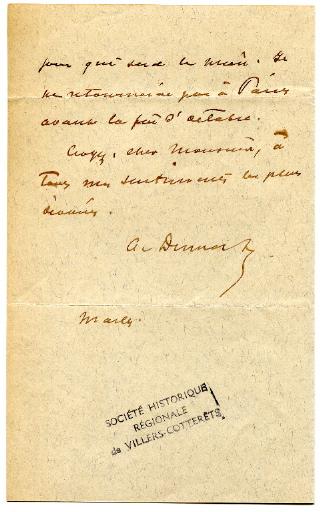 jour qui sera le mien. Je
ne retournerai pas à Paris
avant la fin d'octobre.
Croyez, cher Monsieur, à
tous mes sentiments les plus
dévoués.
A. Dumas f.
Marly.
SOCIÉTÉ HISTORIQUE
RÉGIONALE
de VILLERS-COTTERÊTS